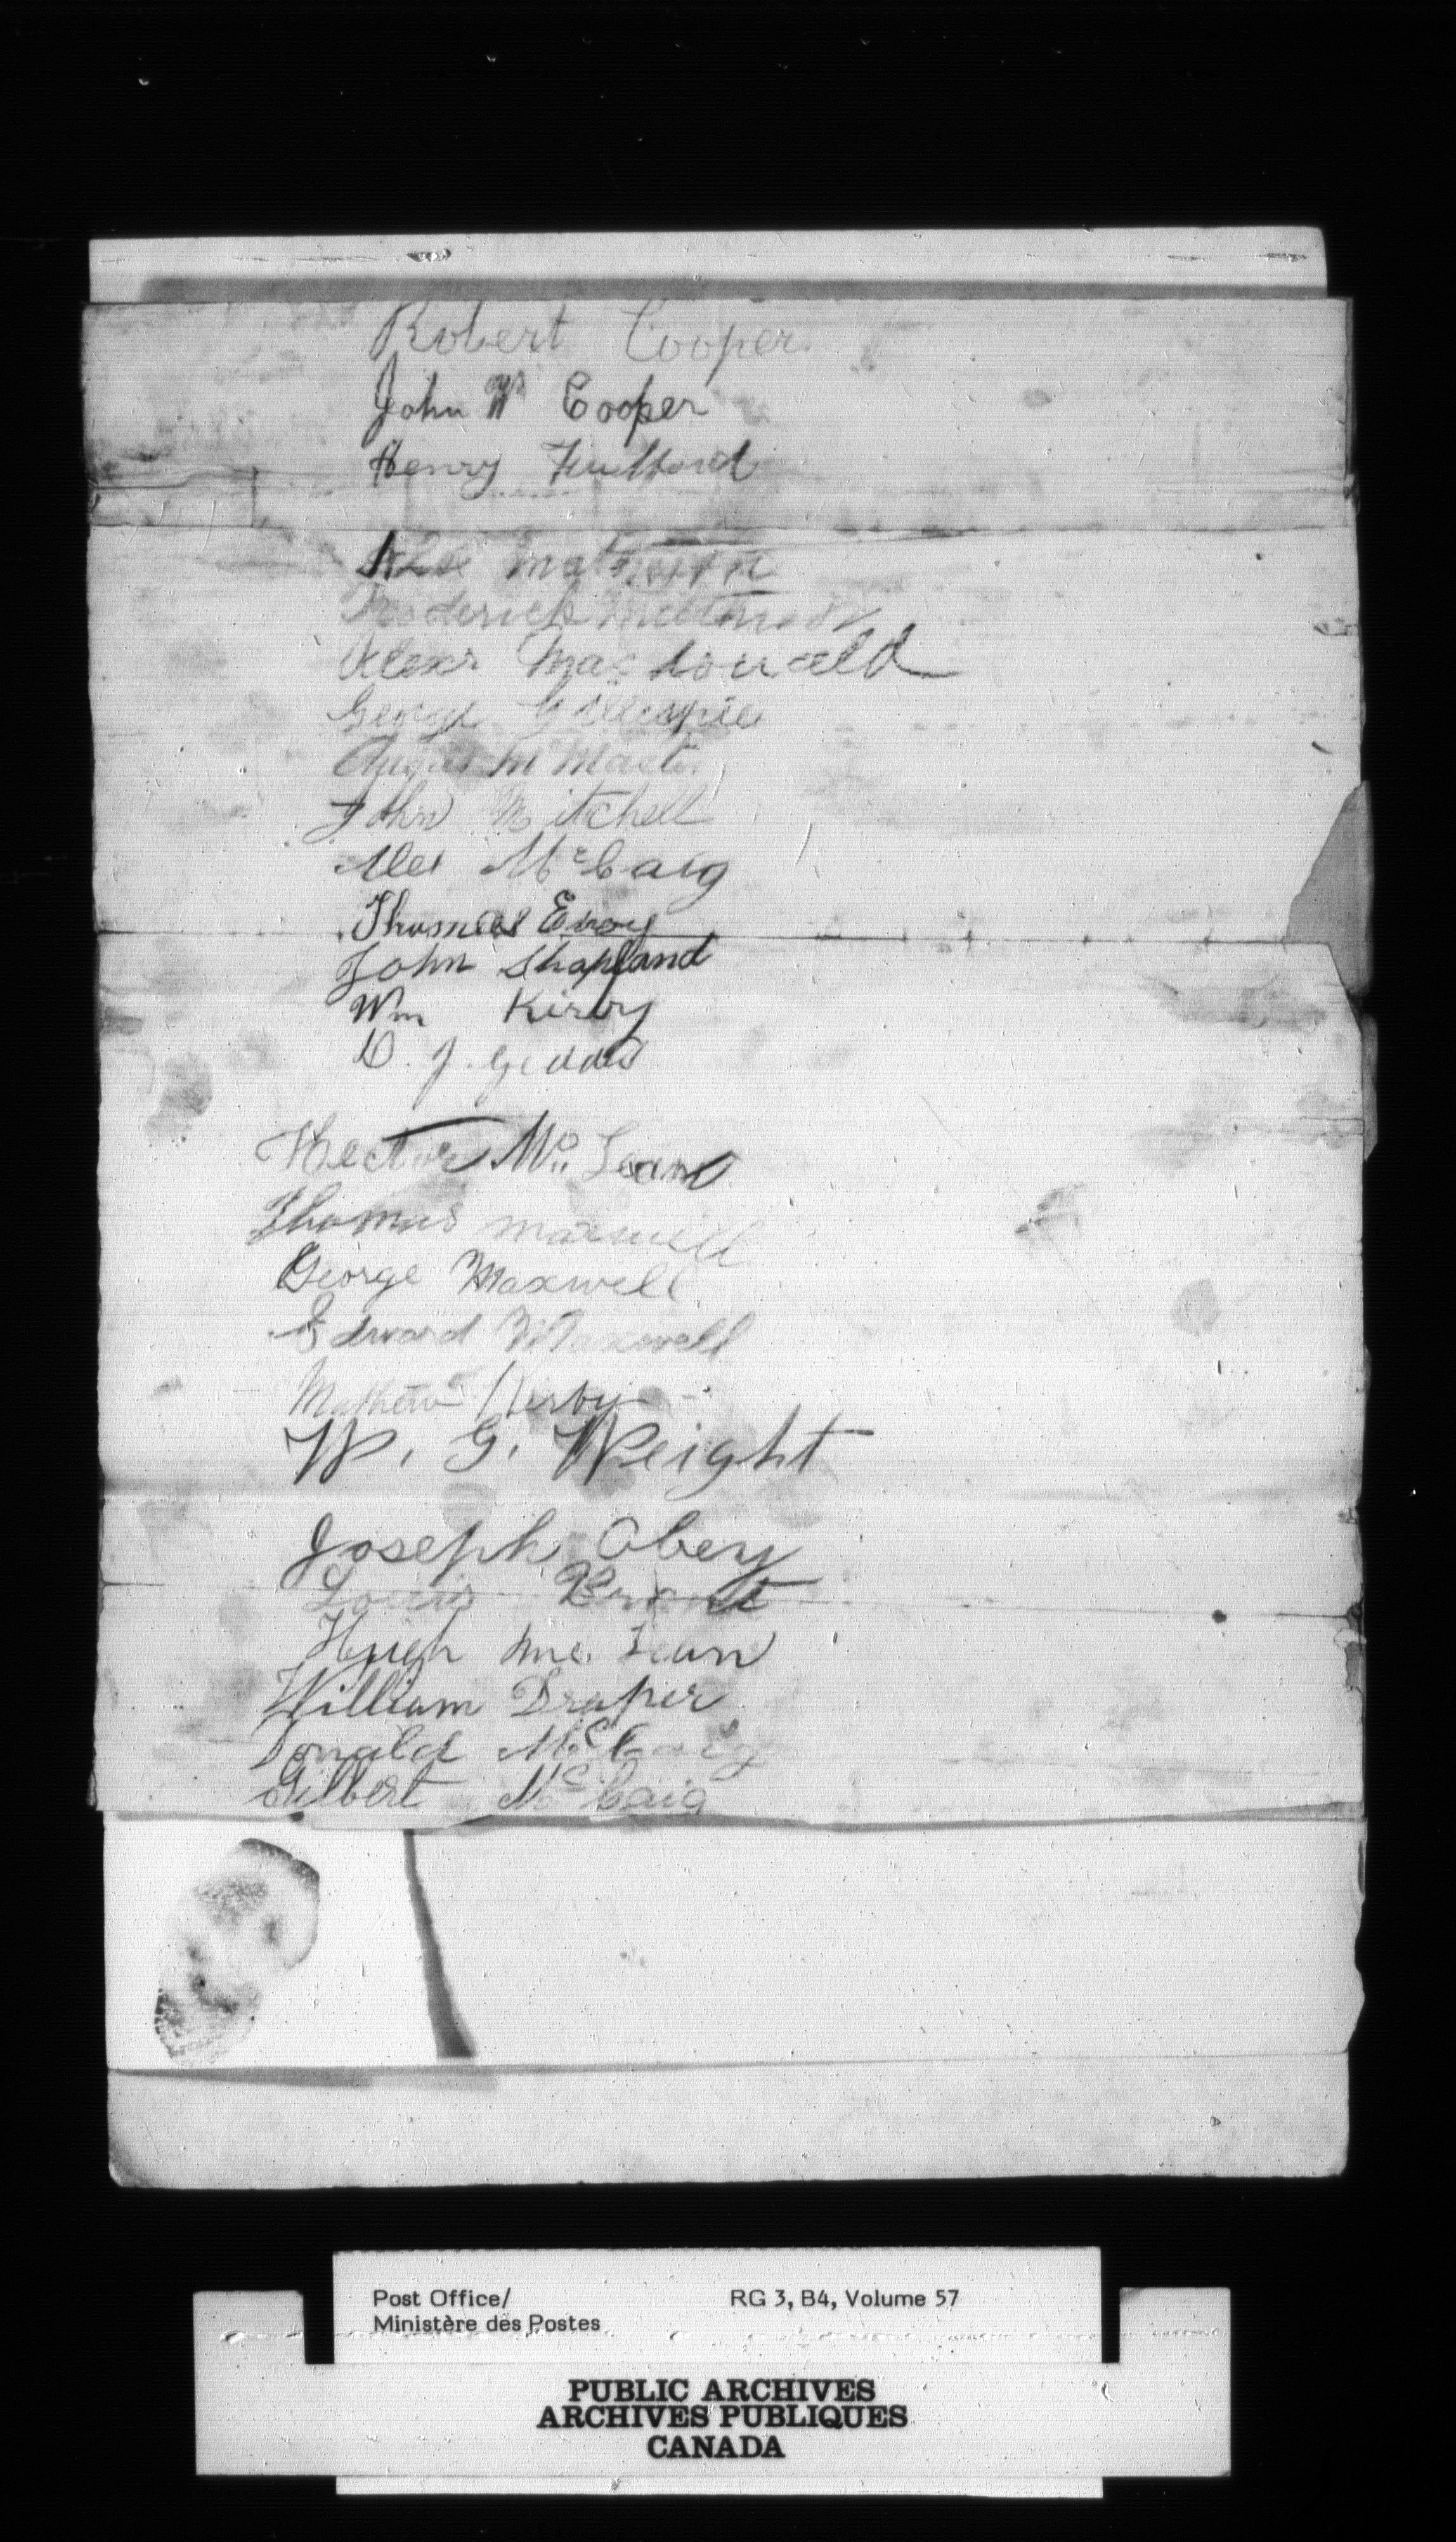 Robert Cooper
John W Cooper
Henry Fullford
Alex Matheson
Roderick Matheson
Alexr MacDonald
George Gillespie
Angus McMaster
John Mitchell
Alex McCaig
Thomas Evoy
John Shapland
Wm Kirby
D. J. Geddes
Hector Mc Lean
Thomas Maxwell
George Maxwell
Edward Maxwell
Mathew Kirby
W. G. Weight
Joseph Obey
Louis Brant
Hugh Mc Lean
William Draper
Donald McCaig
Gilbert McCaig
Post Office/ RG 3, B4, Volume 57
Ministère des Postes
PUBLIC ARCHIVES
ARCHIVES PUBLIQUES
CANADA